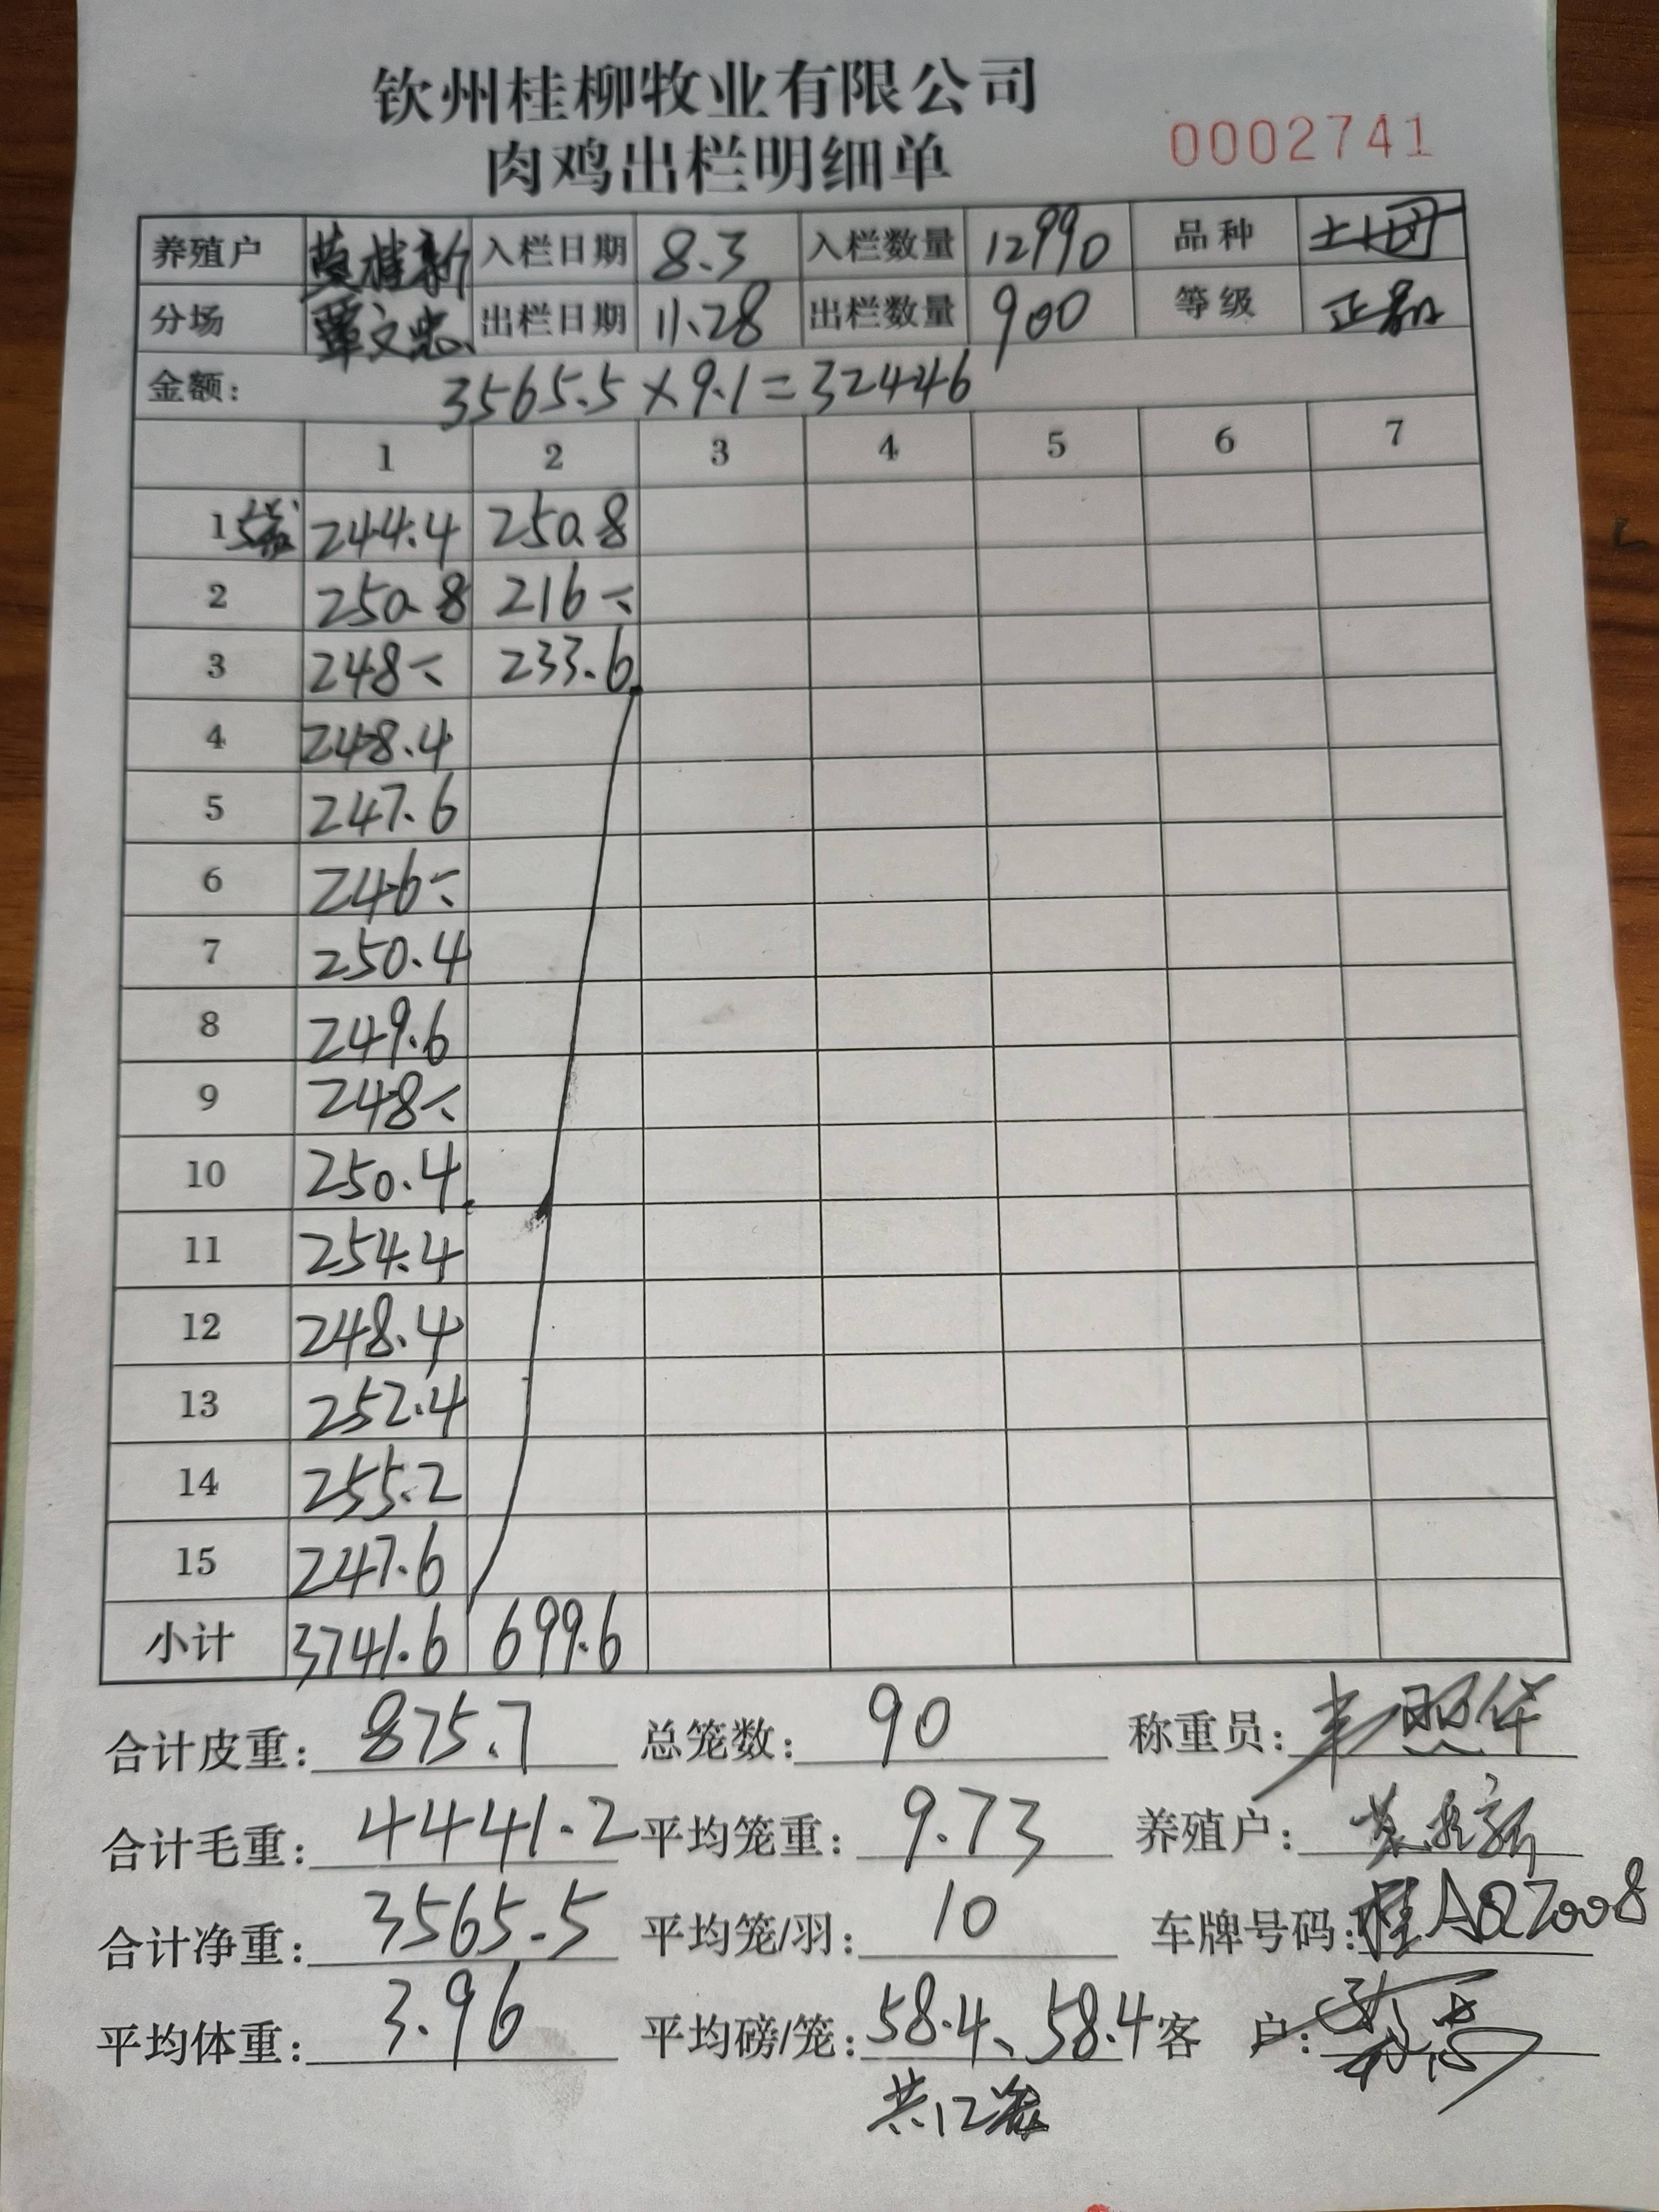 钦州桂柳牧业有限公司
肉鸡出栏明细单 0002741
养殖户 莫桂新 入栏日期 8.3 入栏数量 12990 品种 土
分场 覃文忠 出栏日期 11.28 出栏数量 900 等级 正品
金额: 3565.5×9.1=32446
1 2 3 4 5 6 7
1 5笼 244.4 250.8
2 250.8 216-
3 248- 233.6
4 248.4
5 247.6
6 246-
7 250.4
8 249.6
9 248-
10 250.4
11 254.4
12 248.4
13 252.4
14 255.2
15 247.6
小计 3741.6 699.6
合计皮重: 875.7 总笼数: 90 称重员:
合计毛重: 4441.2 平均笼重: 9.73 养殖户: 莫桂新
合计净重: 3565.5 平均笼/羽: 10 车牌号码: 桂AQZ008
平均体重: 3.96 平均磅/笼: 58.4、58.4 客 户:
共12笼